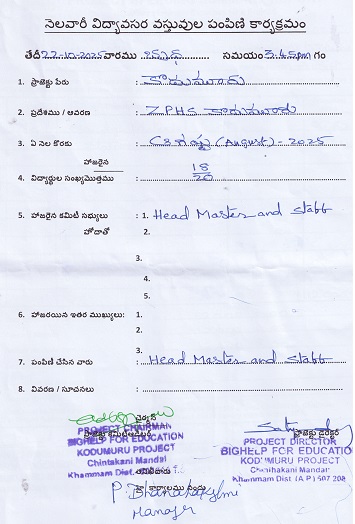 నెలవారీ విద్యావసర వస్తువుల పంపిణి కార్యక్రమం
తేదీ 22-10-2025 వారము బుధ సమయం 3:45pm గం
1. ప్రాజెక్టు పేరు : కొడుమూరు
2. ప్రదేశము / ఆవరణ : ZPHS కొడుమూరు
3. ఏ నెల కొరకు : (August) - 2025
హాజరైన
4. విద్యార్థుల సంఖ్య మొత్తము : 18/20
5. హాజరైన కమిటీ సభ్యులు : 1. Head Master and Staff
హోదాతో 2.
3.
4.
5.
6. హాజరయిన ఇతర ముఖ్యులు: 1.
2.
3.
7. పంపిణి చేసిన వారు : Head Master and Staff
8. వివరణ / సూచనలు :
ఛైర్మన్
PROJECT CHAIRMAN
BIGHELP FOR EDUCATION
KODUMURU PROJECT
Chintakani Mandal
Khammam Dist.
ప్రాజెక్టు డైరెక్టర్
PROJECT DIRECTOR
BIGHELP FOR EDUCATION
KODUMURU PROJECT
Chinthakani Mandal
Khammam Dist (A P) 507 208
P. Dhanalakshmi
Manager